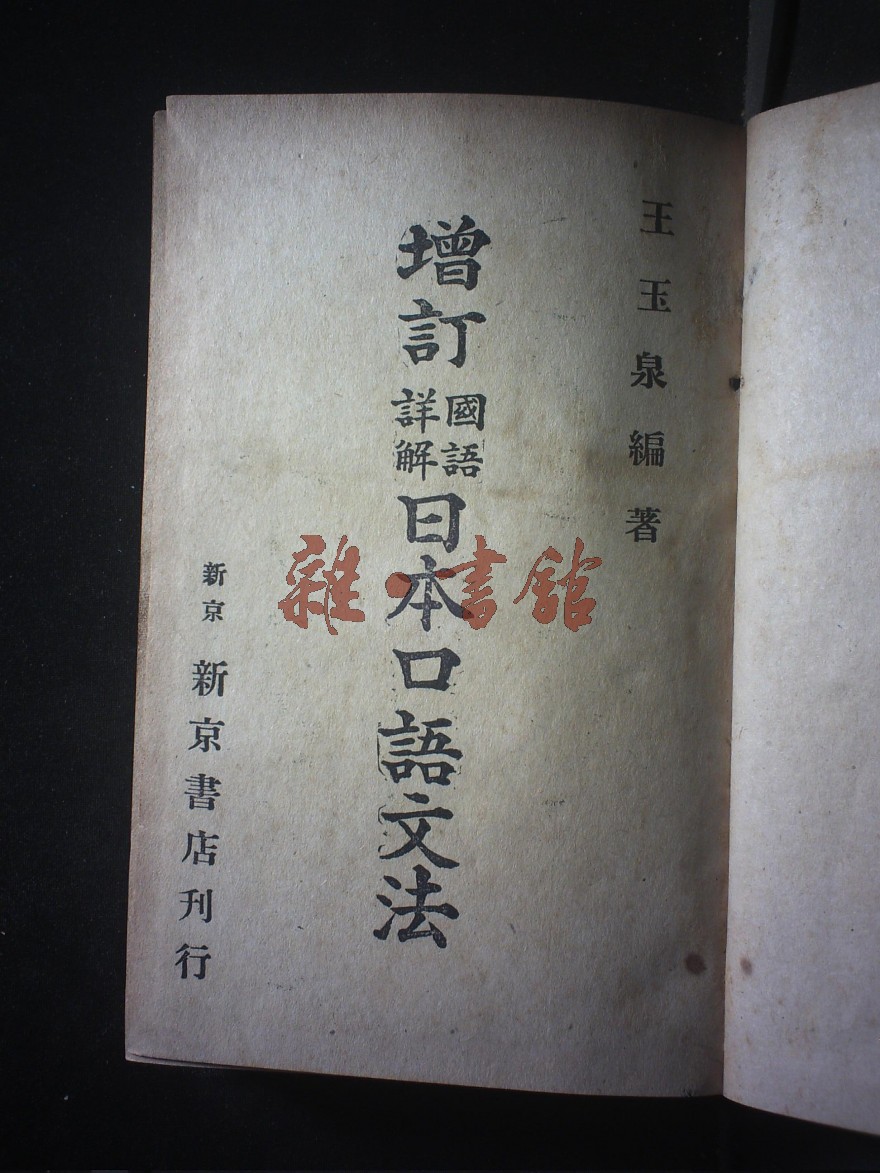 王玉泉編著
增訂國語詳解日本口語文法
新京 新京書店刊行
雜·書館